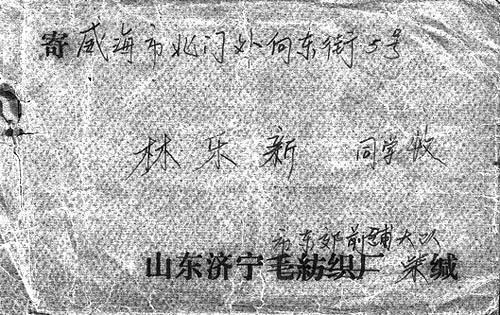 寄 威海市北门外向东街5号
林乐新 同学收
市东郊前铺大队
山东济宁毛纺织厂 柴缄